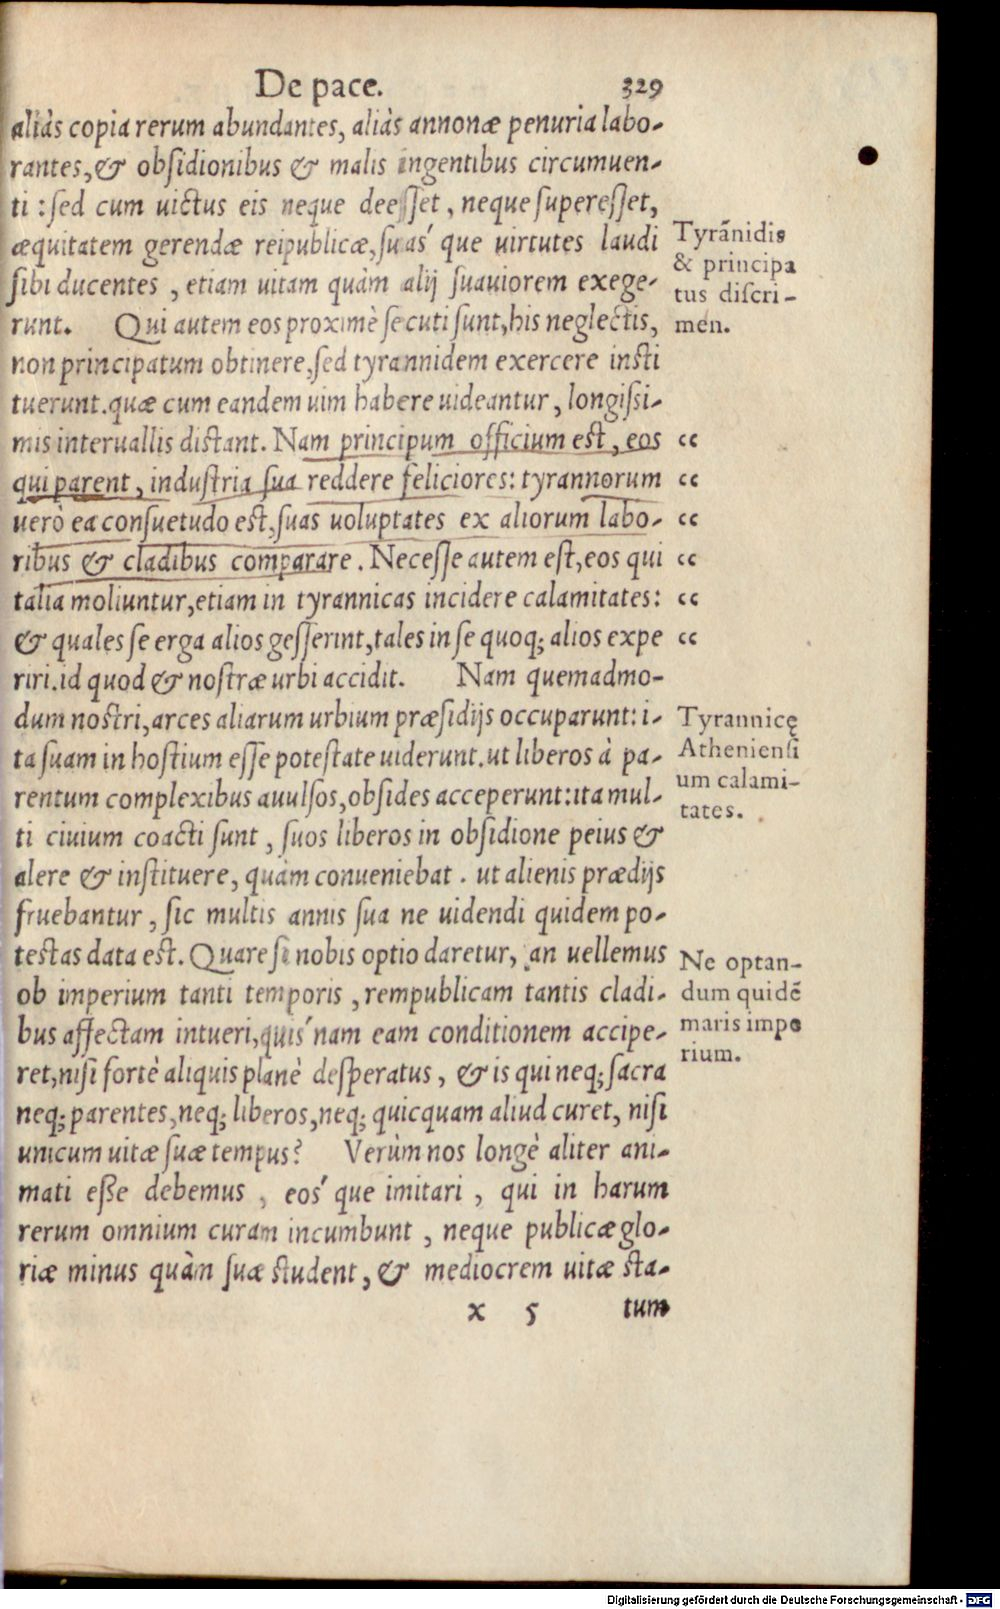 De pace. 329
aliàs copia rerum abundantes, aliàs annonæ penuria labo-
rantes, & obsidionibus & malis ingentibus circumuen-
ti : sed cum uictus eis neque deesset, neque superesset,
æquitatem gerendæ reipublicæ, suas´ que uirtutes laudi
sibi ducentes, etiam uitam quàm alij suauiorem exege-
runt. Qui autem eos proximè secuti sunt, his neglectis,
non principatum obtinere, sed tyrannidem exercere insti
tuerunt. quæ cum eandem uim habere uideantur, longissi-
mis interuallis distant. Nam principum officium est, eos
qui parent, industria sua reddere feliciores: tyrannorum
uerò ea consuetudo est, suas uoluptates ex aliorum labo-
ribus & cladibus comparare. Necesse autem est, eos qui
talia moliuntur, etiam in tyrannicas incidere calamitates:
& quales se erga alios gesserint, tales in se quoq; alios expe
riri. id quod & nostræ urbi accidit. Nam quemadmo-
dum nostri, arces aliarum urbium præsidijs occuparunt: i-
ta suam in hostium esse potestate uiderunt. ut liberos à pa-
rentum complexibus auulsos, obsides acceperunt: ita mul-
ti ciuium coacti sunt, suos liberos in obsidione peius &
alere & instituere, quàm conueniebat. ut alienis prædijs
fruebantur, sic multis annis sua ne uidendi quidem po-
testas data est. Quare si nobis optio daretur, an uellemus
ob imperium tanti temporis, rempublicam tantis cladi-
bus affectam intueri, quis´ nam eam conditionem accipe-
ret, nisi fortè aliquis planè desperatus, & is qui neq; sacra
neq; parentes, neq; liberos, neq; quicquam aliud curet, nisi
unicum uitæ suæ tempus? Verùm nos longè aliter ani-
mati eße debemus, eos´ que imitari, qui in harum
rerum omnium curam incumbunt, neque publicæ glo-
riæ minus quàm suæ student, & mediocrem uitæ sta-
x 5 tum
Tyrãnidis
& principa
tus discri-
men.
cc
cc
cc
cc
cc
cc
Tyrannicę
Atheniensi
um calami-
tates.
Ne optan-
dum quidẽ
maris impe
rium.
Digitalisierung gefördert durch die Deutsche Forschungsgemeinschaft - DFG